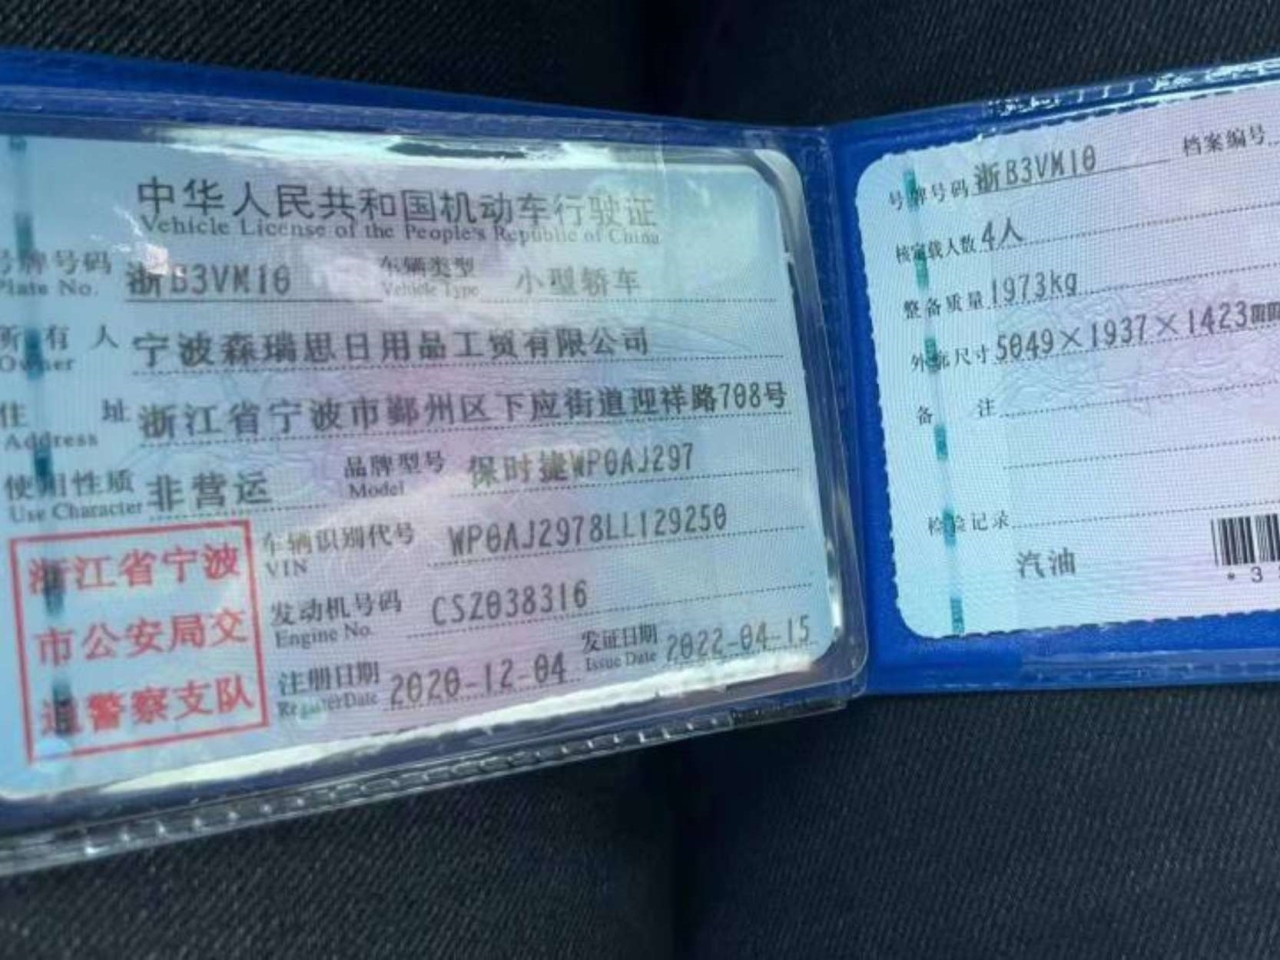 中华人民共和国机动车行驶证
Vehicle License of the People's Republic of China
号牌号码 浙B3VM10 车辆类型 小型轿车
Plate No. Vehicle Type
所有人 宁波森瑞思日用品工贸有限公司
Owner
住址 浙江省宁波市鄞州区下应街道迎祥路708号
Address
使用性质 非营运 品牌型号 保时捷WP0AJ297
Use Character Model
浙江省宁波
市公安局交
通警察支队
车辆识别代号 WP0AJ2978LL129250
VIN
发动机号码 CSZ038316
Engine No.
注册日期 2020-12-04 发证日期 2022-04-15
Register Date Issue Date
号牌号码 浙B3VM10 档案编号
核定载人数 4人
整备质量 1973kg
外廓尺寸 5049×1937×1423mm
备注
检验记录
汽油